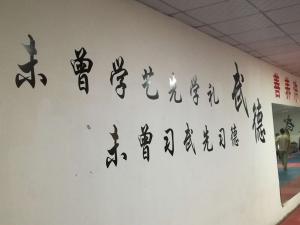 未曾学艺先学礼
未曾习武先习德
武德